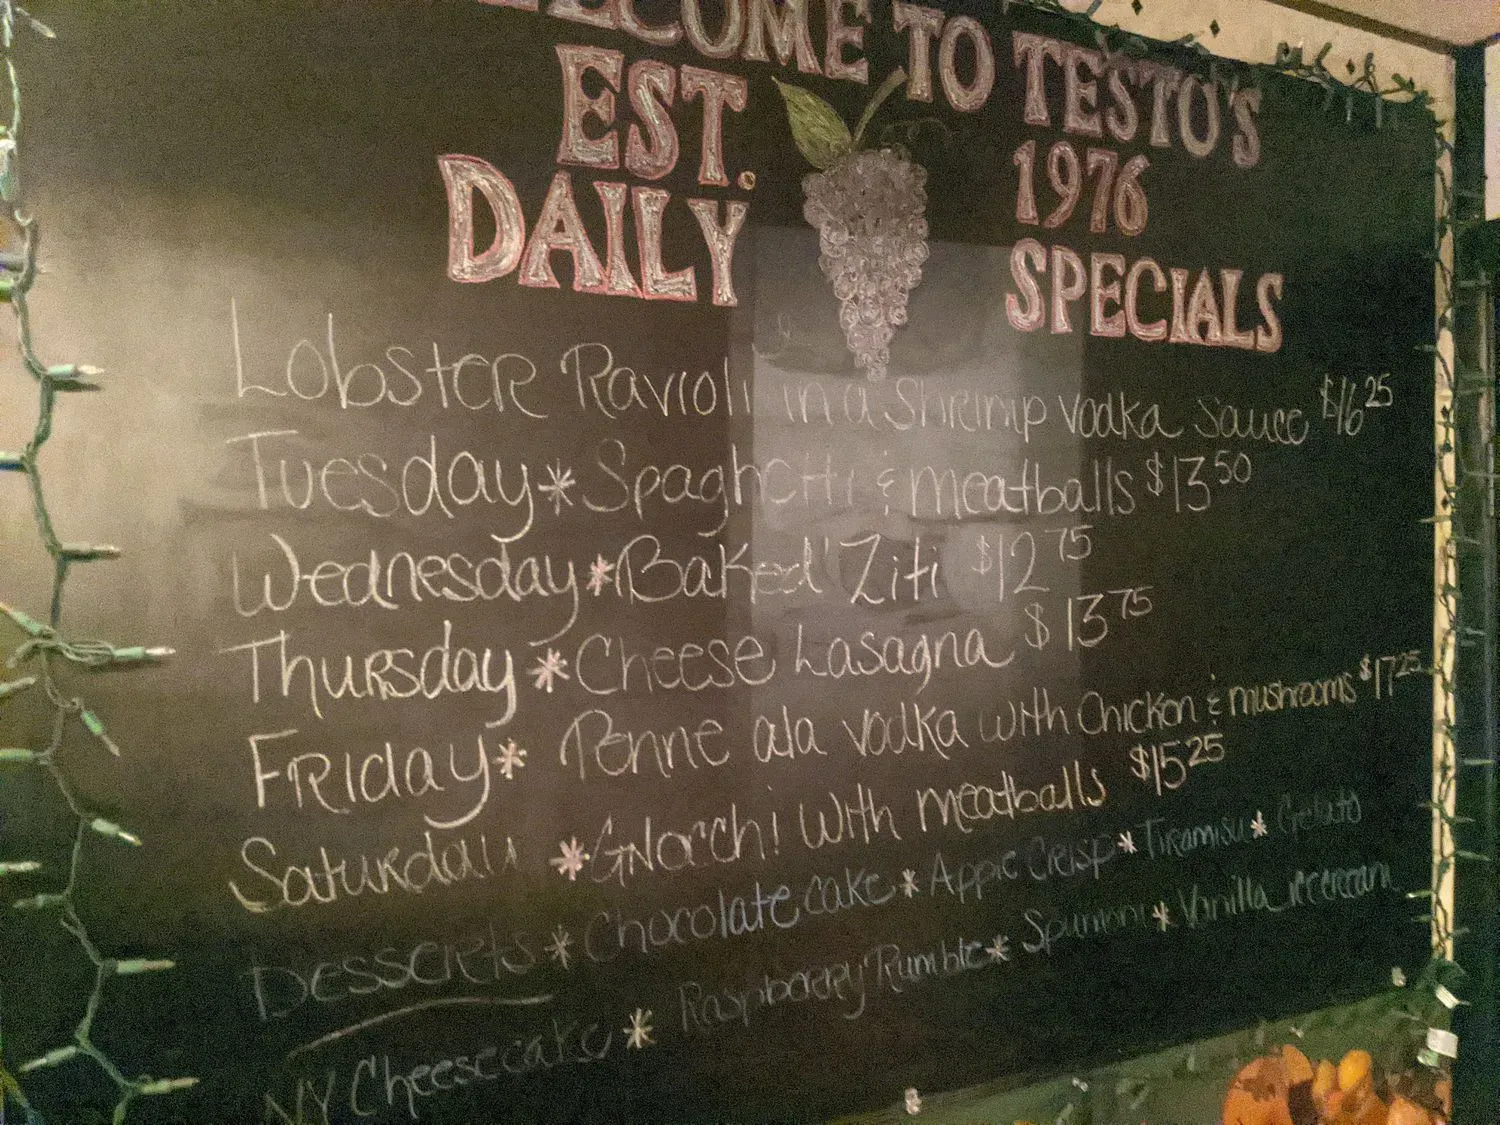 WELCOME TO TESTO'S
EST. 1976
DAILY SPECIALS
Lobster Ravioli in a Shrimp Vodka Sauce $16 25
Tuesday * Spaghetti & meatballs $13 50
Wednesday * Baked Ziti $12 75
Thursday * Cheese Lasagna $13 75
Friday * Penne ala vodka with Chicken & mushrooms $17 25
Saturday * GNocchi with meatballs $15 25
Desserts * Chocolate cake * Apple Crisp * Tiramisu * Gelato
NY Cheesecake * Raspberry Rumble * Spumoni * Vanilla icecream